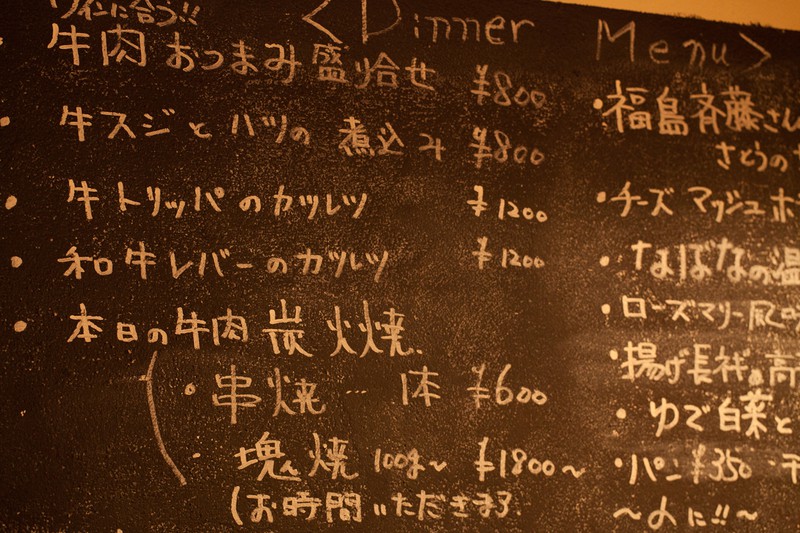 <Dinner Menu>
ワインに合う!!
・牛肉おつまみ盛り合せ ¥800
・牛スジとハツの煮込み ¥800
・牛トリッパのカツレツ ¥1200
・和牛レバーのカツレツ ¥1200
・本日の牛肉炭火焼
・串焼… 1本 ¥600
・塊焼 100g〜 ¥1800〜
(お時間いただきます
・福島斉藤さん
さとうの
・チーズマッシュポ
・なばなの温
・ローズマリー風
・揚げ長芋
・ゆで白菜と
・パン¥350・
〜よに!!〜